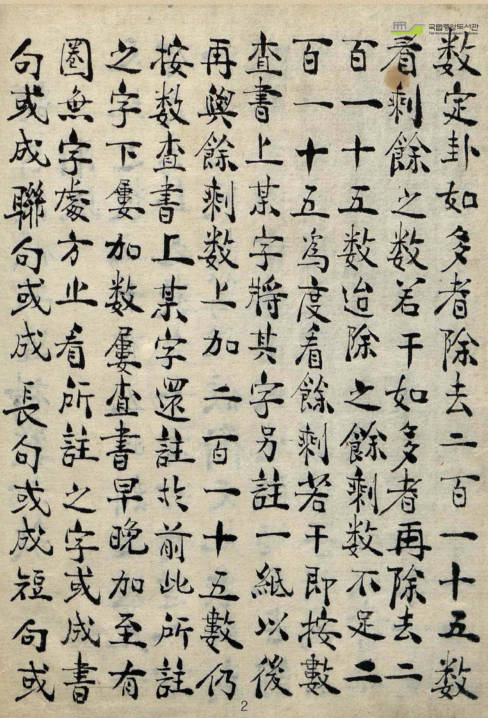 数定卦如多者除去二百一十五数
看剩餘之数若干如多者再除去二
百一十五数迨除之餘剩数不足二
百一十五爲度看餘剩若干即按數
查書上某字將其字另註一紙以後
再與餘剩数上加二百一十五數仍
按数查書上某字還註扵前此所註
之字下屢加数屢查書早晚加至有
圈無字處方止看所註之字或成書
句或成聯句或成長句或成短句或
국립중앙도서관
2